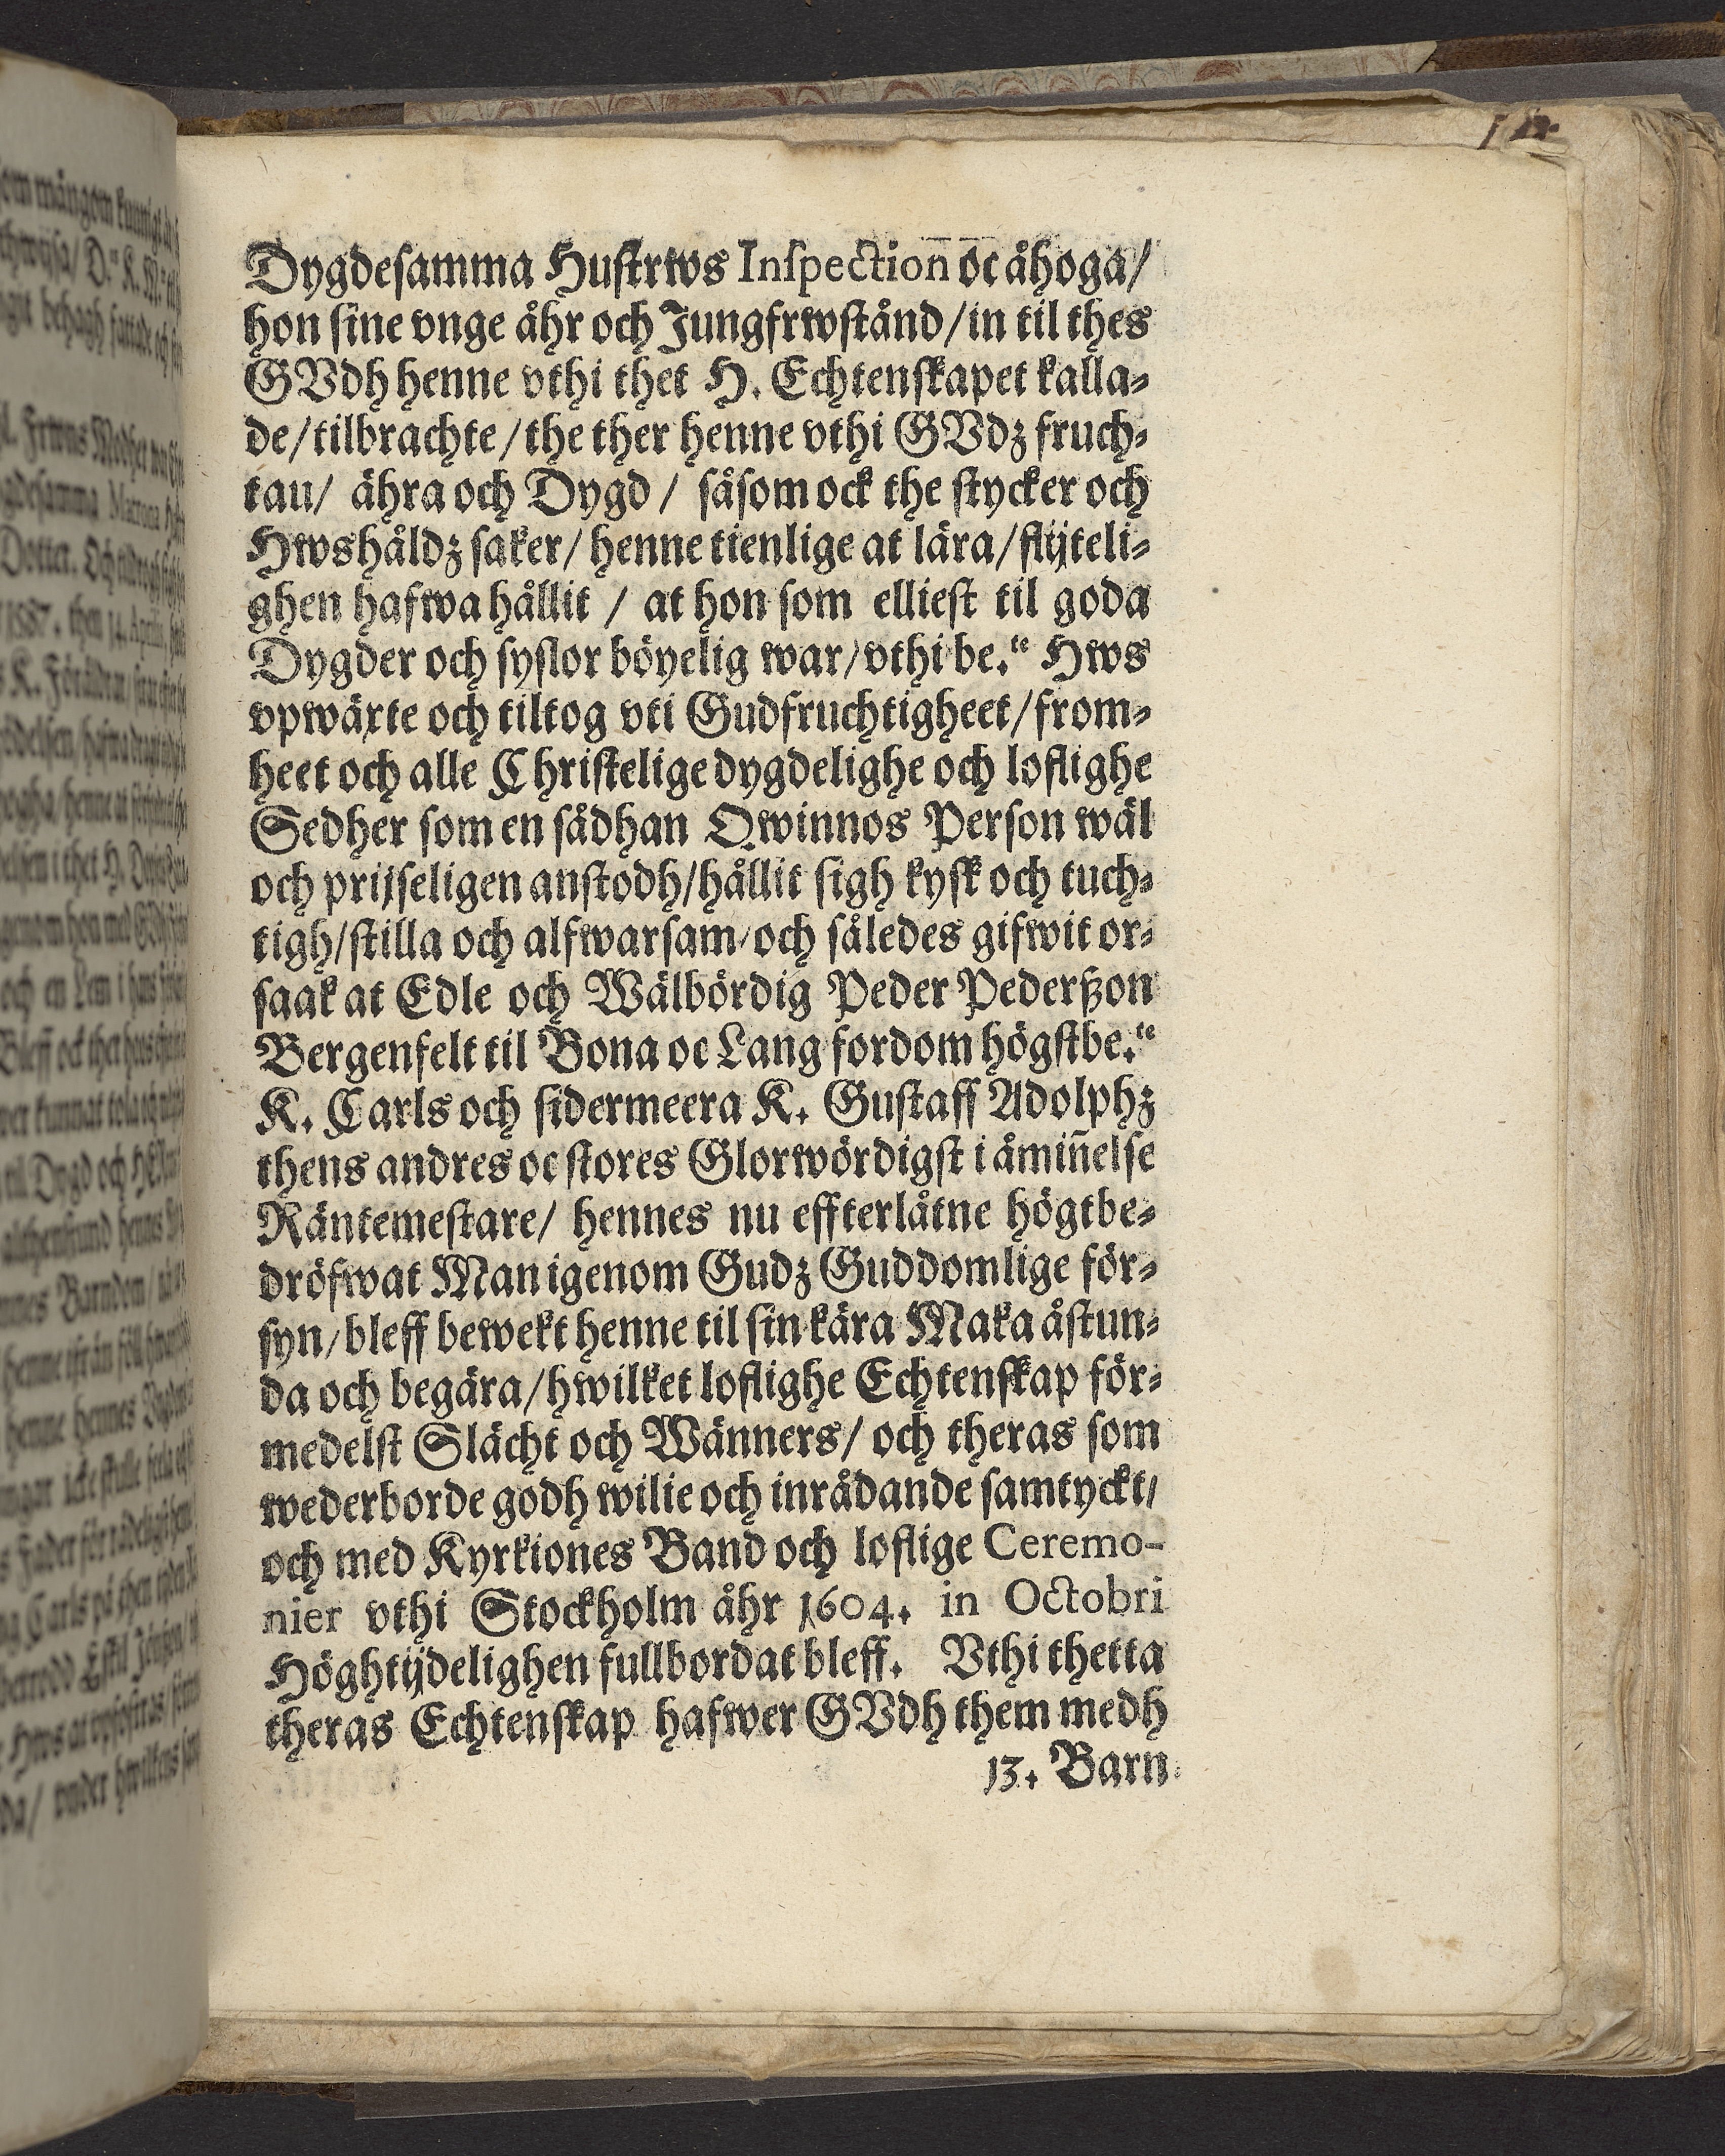 Dygdesamma Hustrws Inspection oc åhoga/
hon sine vnge åhr och Jungfrwstånd/in til thes
GVdh henne vthi thet H. Echtenskapet kalla-
de/tilbrachte/the ther henne vthi GVdz fruch-
tau/ ähra och Dygd/ såsom ock the stycker och
Hwshåldz saker/ henne tienlige at lära/flijteli-
ghen hafwa hållit / at hon som elliest til goda
Dygder och syslor böyelig war/vthi be.te Hws
vpwäxte och tiltog vti Gudfruchtigheet/from-
heet och alle Christelige dygdelighe och loflighe
Sedher som en sådhan Qwinnos Person wäl
och prijseligen anstodh/hållit sigh kysk och tuch-
tigh/stilla och alfwarsam/och således gifwit or-
saak at Edle och Wälbördig Peder Pederßon
Bergenfelt til Bona oc Lang fordom högstbe.te
K. Carls och sidermeera K. Gustaff Adolphz
thens andres oc stores Glorwördigst i åmiñelse
Räntemestare/ hennes nu effterlåtne högtbe-
dröfwat Man igenom Gudz Guddomlige för-
syn/bleff bewekt henne til sin kära Maka åstun-
da och begära/hwilket loflighe Echtenskap för-
medelst Slächt och Wänners/ och theras som
wederborde godh wilie och inrådande samtyckt/
och med Kyrkiones Band och loflige Ceremo-
nier vthi Stockholm åhr 1604. in Octobri
Höghtijdelighen fullbordat bleff. Vthi thetta
theras Echtenskap hafwer GVdh them medh
13. Barn